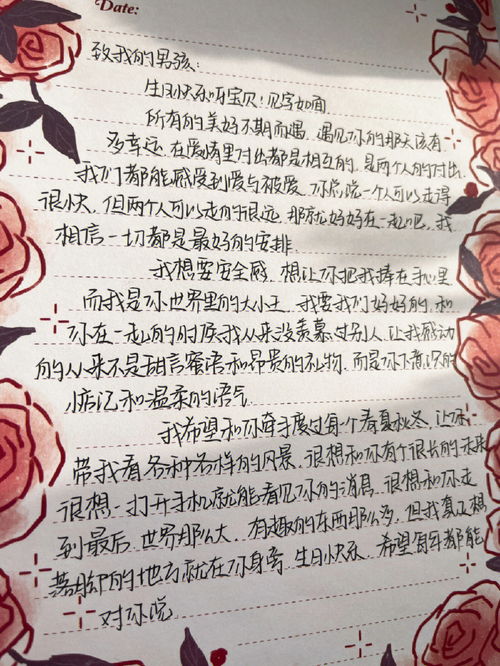 Date:
致我的男孩:
生日快乐呀宝贝!见字如面
所有的美好不期而遇 遇见你的那天该有
多幸运 在爱情里付出都是相互的,是两个人的付出
我们都能感受到爱与被爱 你总说一个人可以走得
很快,但两个人可以走的很远 那就好好在一起吧,我
相信一切都是最好的安排
我想要安全感,想让你把我捧在手心里
而我是你世界里的大小王 我要我们好好的,和
你在一起的时候我从来没羡慕过别人,让我感动
的从来不是甜言蜜语和昂贵的礼物,而是你下意识的
惦记和温柔的语气
我希望和你牵手度过每个春夏秋冬,让你
带我看各种各样的风景,很想和你有个很长的未来
很想一打开手机就能看见你的消息,很想和你走
到最后 世界那么大 有趣的东西那么多,但我真正想
落脚的地方就在你身旁 生日快乐,希望每年都能
对你说